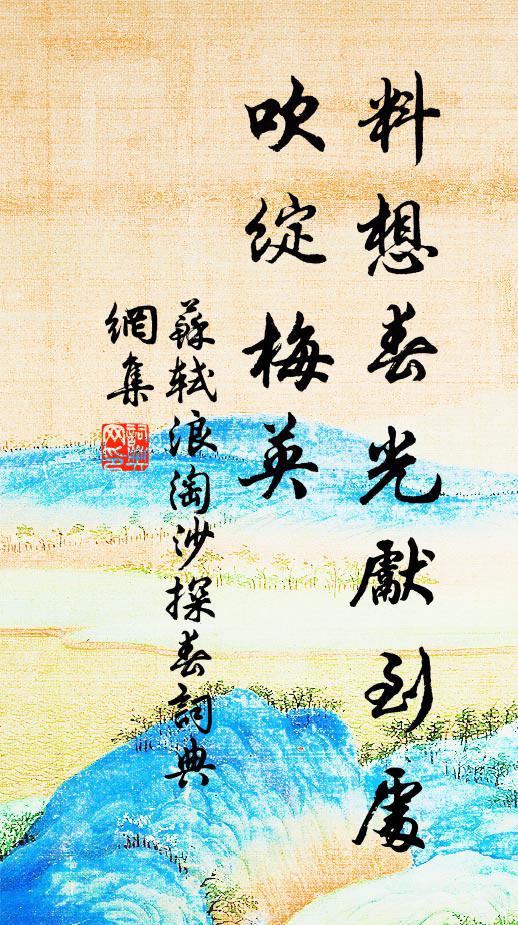 料想春光獻到處
吹綻梅英
蘇軾浪淘沙探春詞典
網集